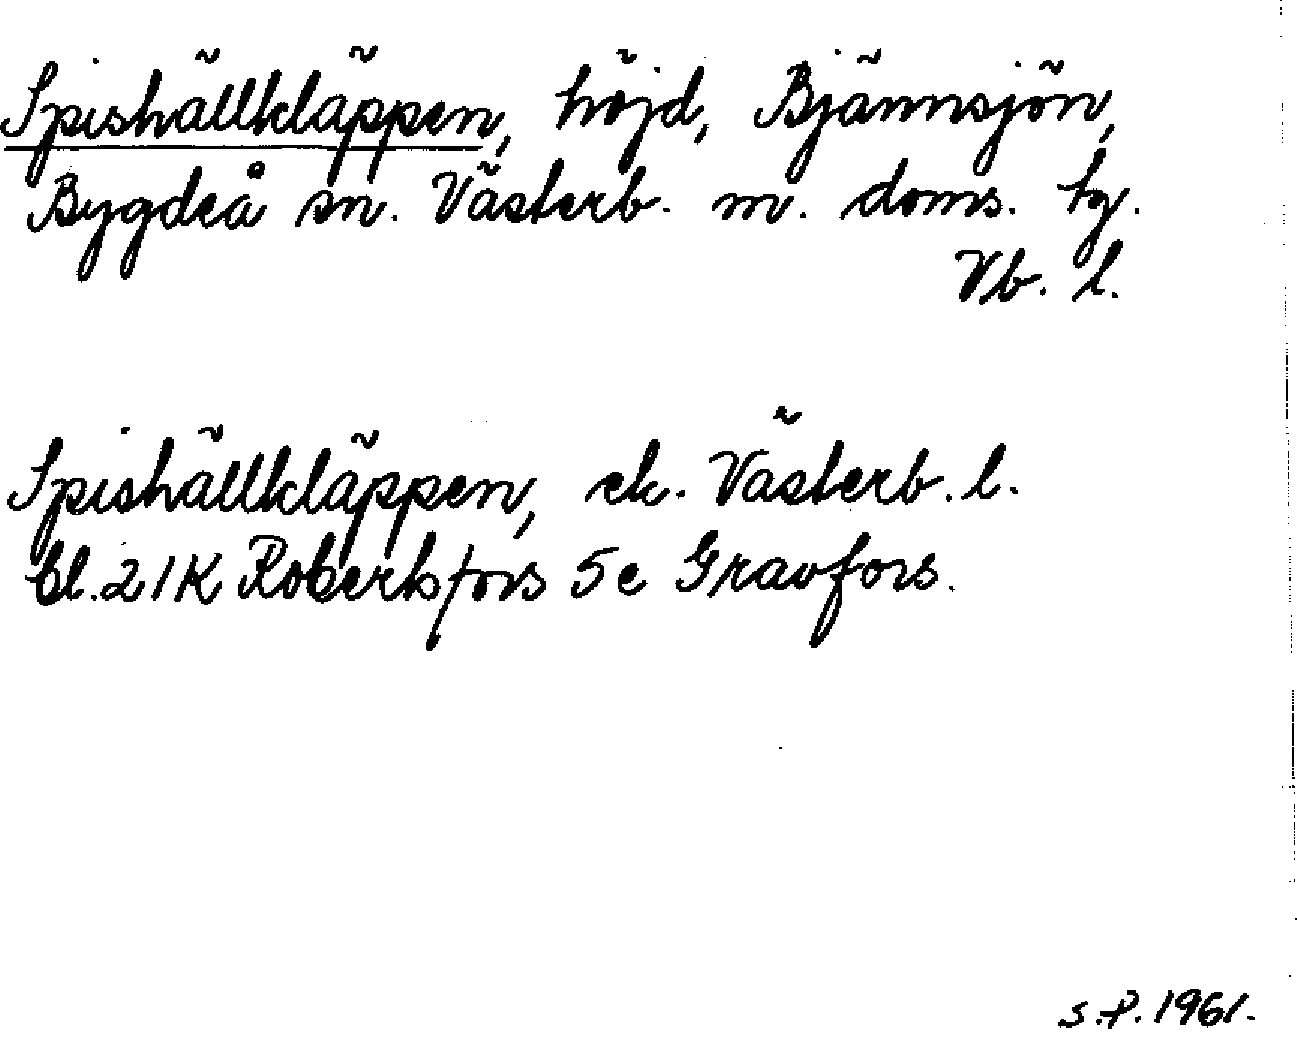 Spishällkläppen, höjd, Bjännsjön,
Bygdeå sn. Västerb. m. doms. tg.
Vb. l.
Spishällkläppen, ek. Västerb. l.
bl. 21K Robertsfors 5e Gravfors.
S.P. 1961.